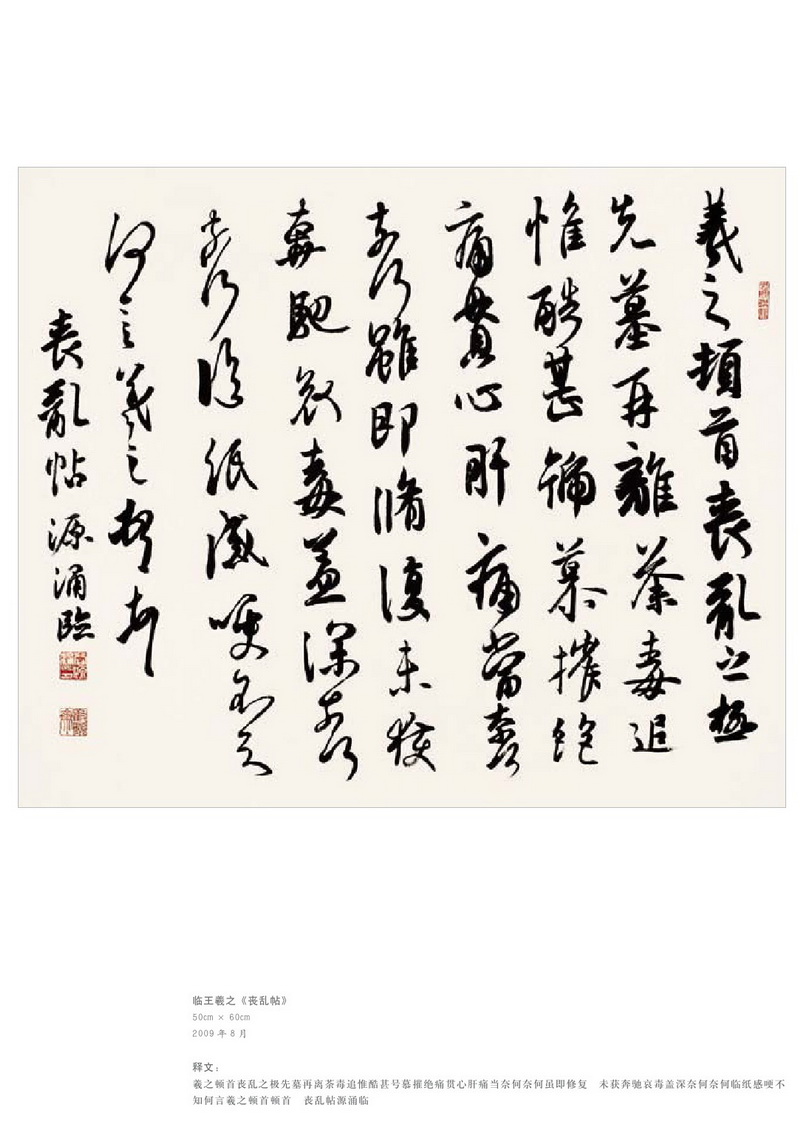 羲之頓首喪亂之極
先墓再離荼毒追
惟酷甚號慕摧絕
痛貫心肝痛當奈何
奈何雖即脩復未獲
奔馳哀毒益深奈何
奈何臨紙感哽不知
何言羲之頓首頓首
喪亂帖源涌臨
临王羲之《丧乱帖》
50cm × 60cm
2009 年 8 月
释文：
羲之顿首丧乱之极先墓再离荼毒追惟酷甚号慕摧绝痛贯心肝痛当奈何奈何虽即修复　未获奔驰哀毒盖深奈何奈何临纸感哽不
知何言羲之顿首顿首　丧乱帖源涌临